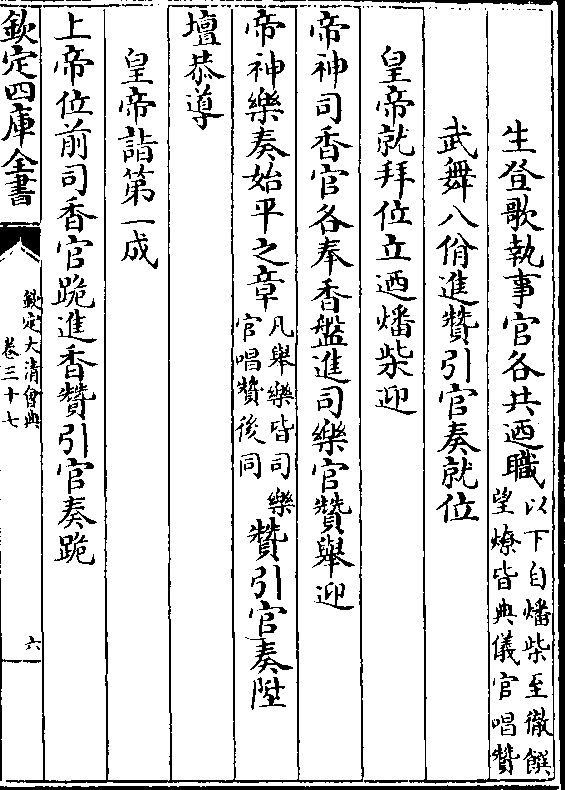 生登歌執事官各共迺職以下自燔柴至徹饌
望燎皆典儀官唱贊
武舞八佾進贊引官奏就位
皇帝就拜位立迺燔柴迎
帝神司香官各奉香盤進司樂官贊舉迎
帝神樂奏始平之章凡舉樂皆司樂
官唱贊後同贊引官奏陞
壇恭導
皇帝詣第一成
上帝位前司香官跪進香贊引官奏跪
欽定四庫全書
欽定大清會典
卷三十七
六